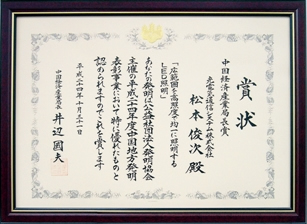 賞状
中国経済産業局長賞
光電気通信システム株式会社
松本俊次殿
「広範囲を高照度で均一に照明する
LED照明」
あなたの発明は公益社団法人発明協会
主催の平成二十四年度中国地方発明
表彰事業において特に優れたものと
認められますのでこれを賞します
平成二十四年十月三十一日
中国経済産業局長
井辺國夫